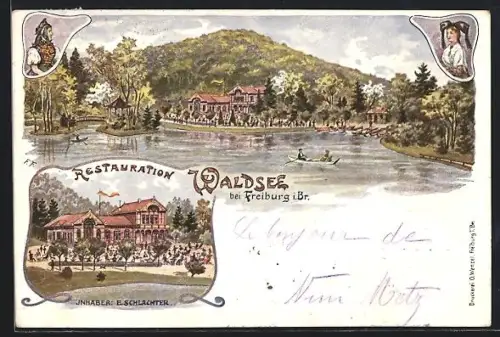 RESTAURATION
WALDSEE
bei Freiburg i. Br.
JNHABER: E. SCHLACHTER.
Le bonjour de
Metz
Druckerei O. Wenzel, Freiburg i. Br.